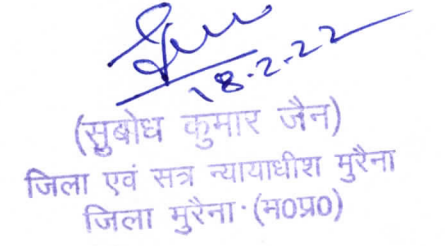 18-2-22
(सुबोध कुमार जैन)
जिला एवं सत्र न्यायाधीश मुरैना
जिला मुरैना (म0प्र0)